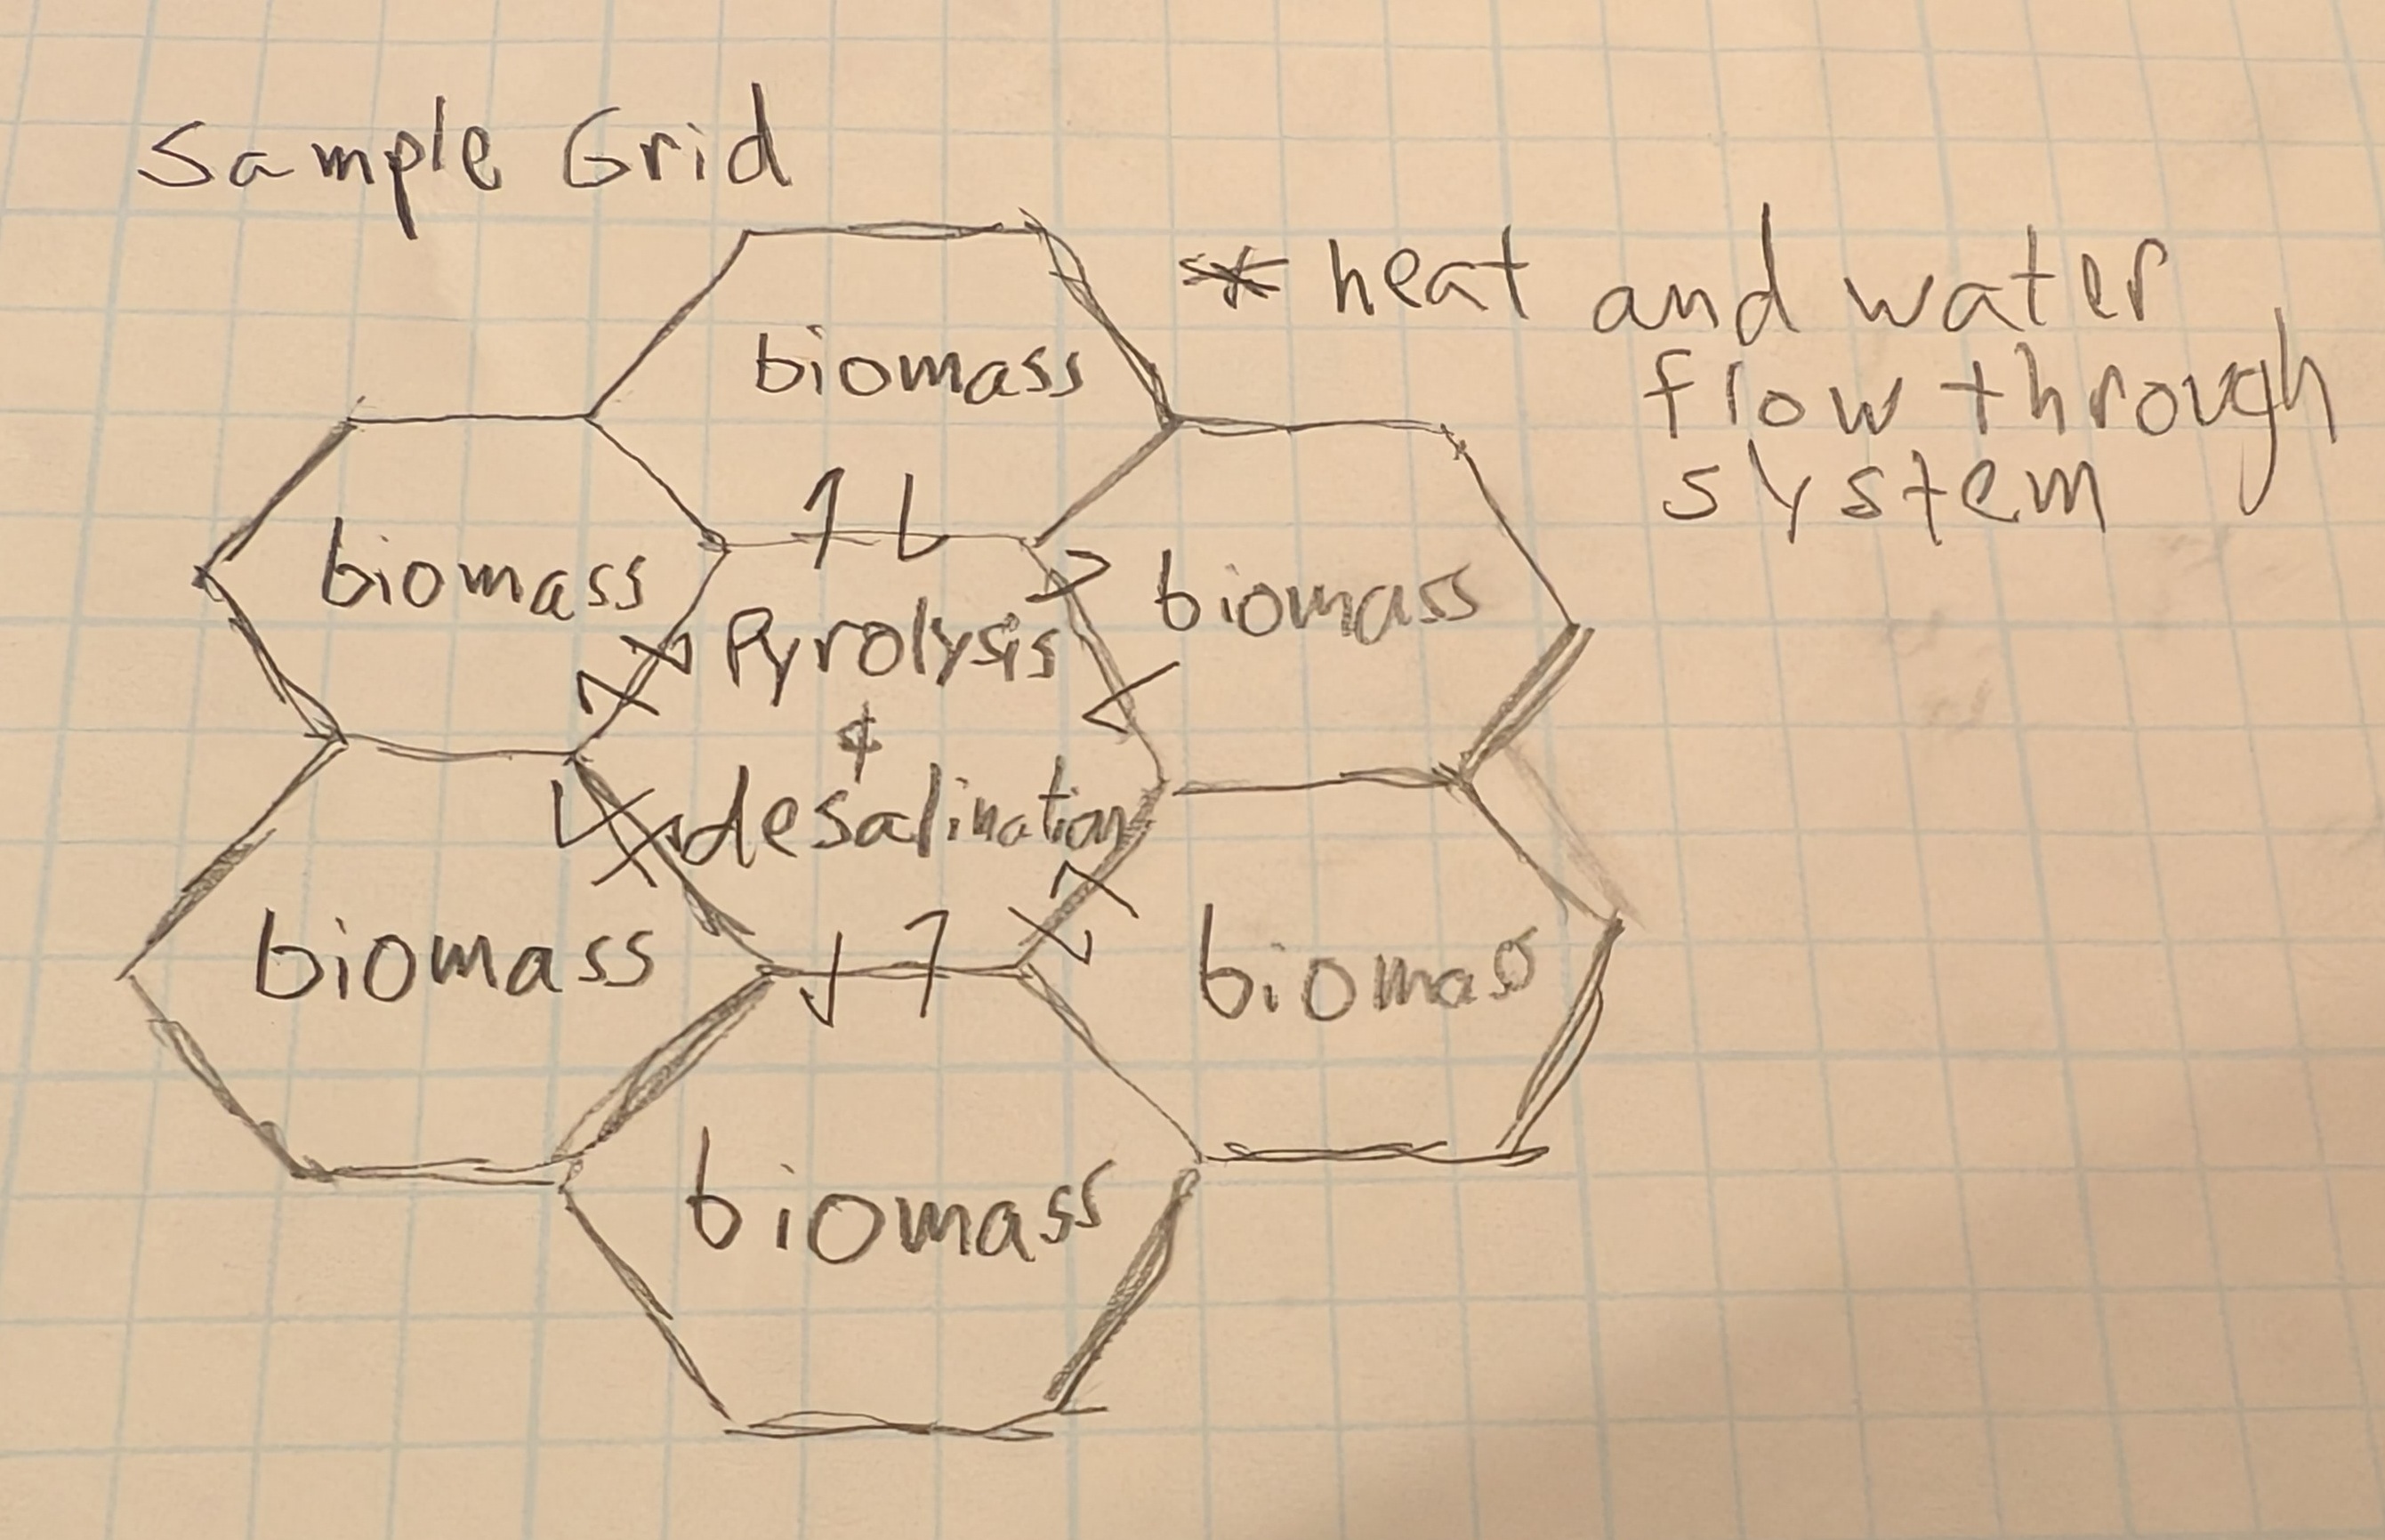 Sample Grid
* heat and water
flow through
system
biomass
biomass
biomass
Pyrolysis
&
desalination
biomass
biomass
biomass